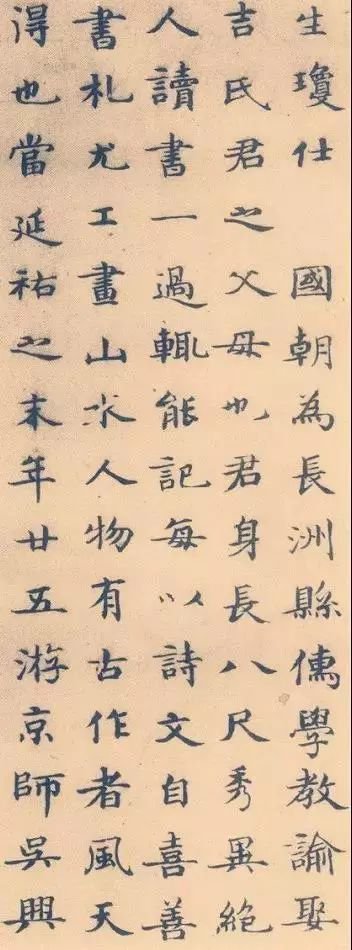 生瓊仕 國朝為長洲縣儒學教諭娶
吉氏君之父母也君身長八尺秀異絕
人讀書一過輒能記每以詩文自喜善
書札尤工畫山水人物有古作者風天
得也當延祐之末年廿五游京師吳興